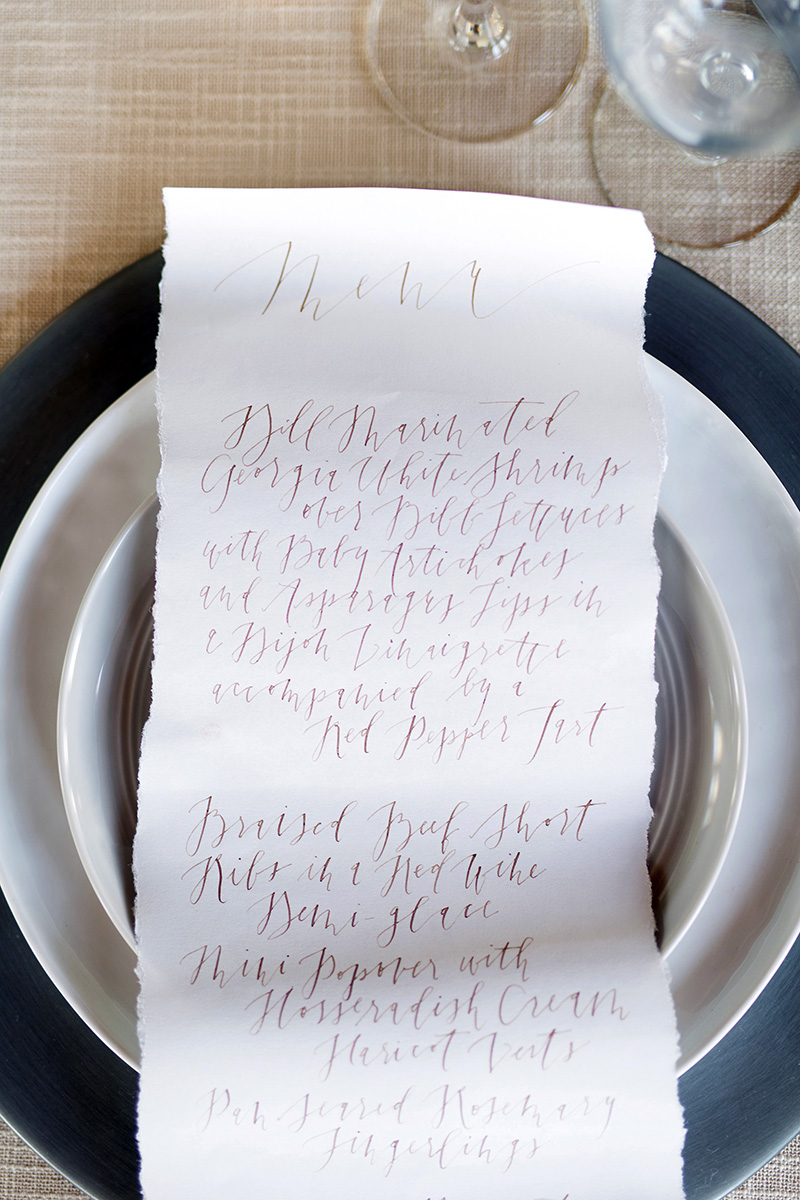 Menu
Dill Marinated
Georgia White Shrimp
over Bibb Lettuces
with Baby Artichokes
and Asparagus Tips in
a Dijon Vinaigrette
accompanied by a
Red Pepper Tart
Braised Beef Short
Ribs in a Red Wine
Demi-glace
Mini Popover with
Horseradish Cream
Haricot Verts
Pan Seared Rosemary
Fingerlings